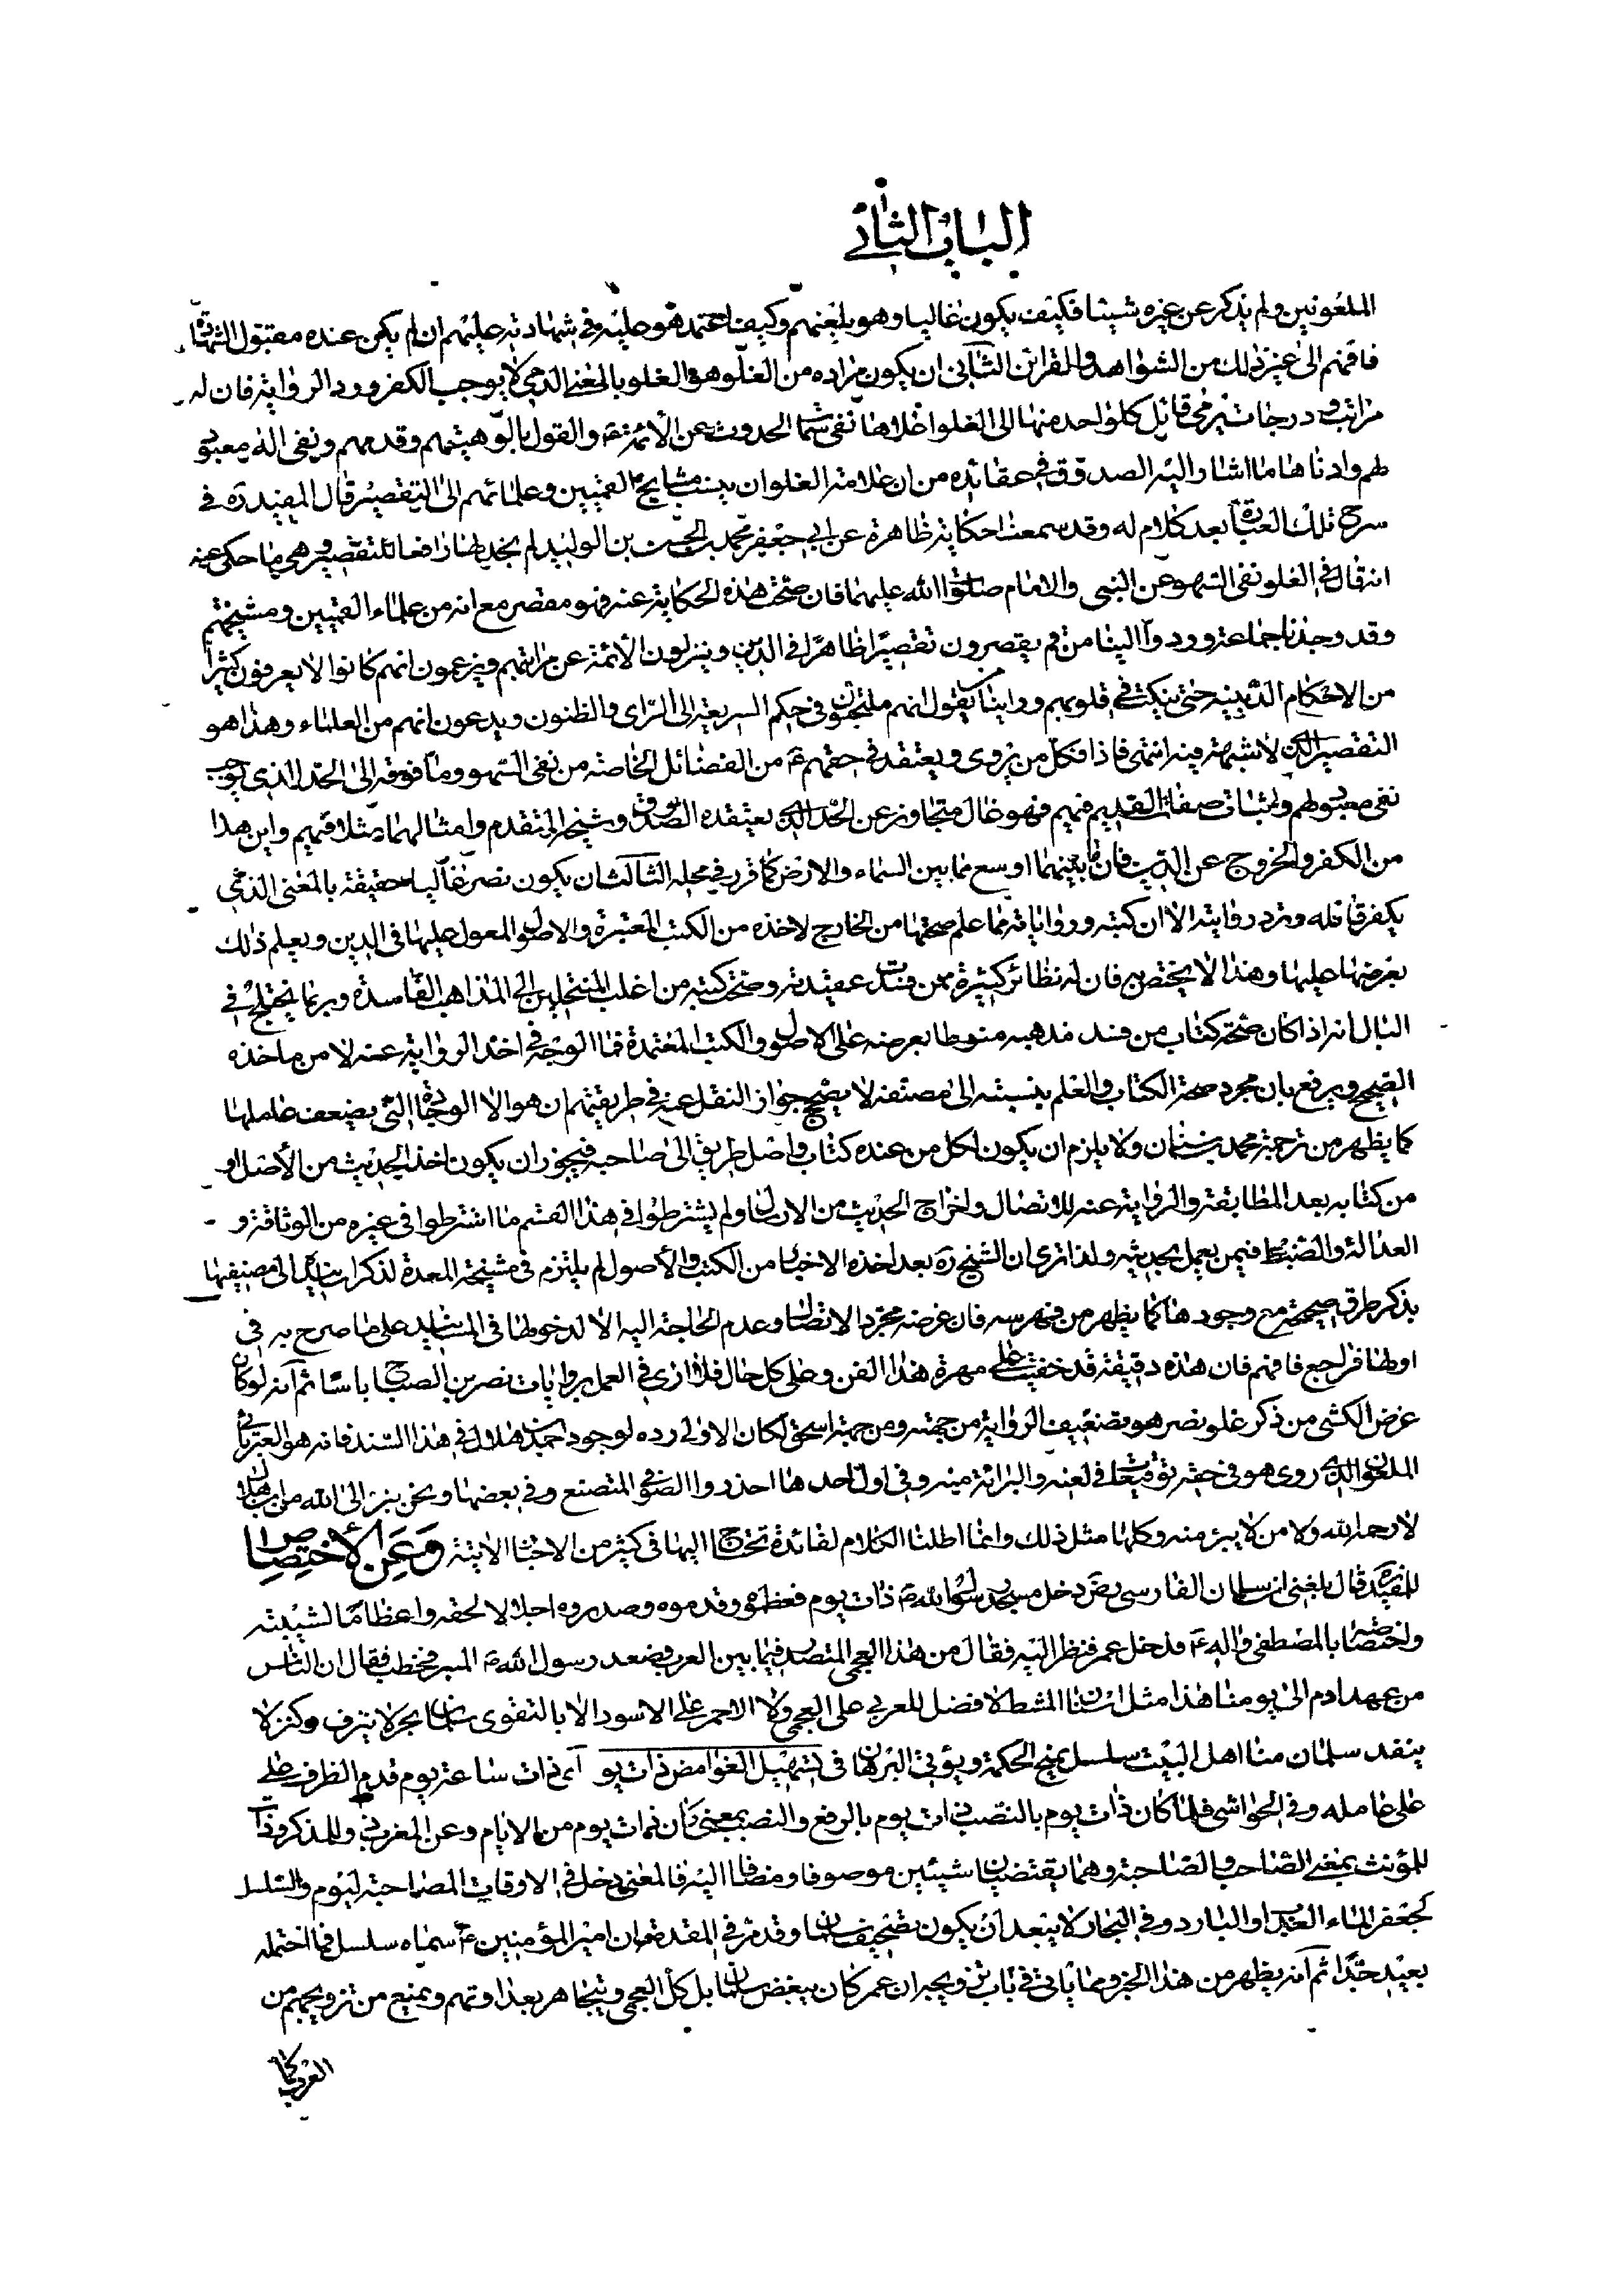 الباب الثاني
الملعونين ولم يذكر عن غيره شيئا فكيف يكون غاليا وهو يلعنهم وكيف اعتمد هو عليه في شهادته عليهم ان لم يكن عنده مقبول الشهادة
فافهم الى غير ذلك من الشواهد والقرائن الثاني ان يكون مراده من الغلو هو الغلو بالمعنى الذي لا يوجب الكفر ورد الرواية فان له
مراتب ودرجات يرمى قائل كل واحد منها الى الغلو اعلاها نفي سمات الحدوث عن الأئمة ع والقول بالوهيتهم وقدمهم ونفي اله معبود
لهم وادناها ما اشار اليه الصدوق في عقائده من ان علامة الغلو ان ينسب مشايخ القميين وعلمائهم الى التقصير قال المفيد ره في
شرح تلك العبارة بعد كلام له وقد سمعنا حكاية ظاهرة عن ابي جعفر محمد بن الحسن بن الوليد لم نجد لها دافعا للتقصير وهي ما حكي عنه
انه قال في الغلو نفي السهو عن النبي والامام صلوات الله عليهما فان صحت هذه الحكاية عنه فهو مقصر مع انه من علماء القميين ومشيختهم
وقد وجدنا جماعة وردوا الينا من قم يقصرون تقصيرا ظاهرا في الدين وينزلون الأئمة عن مراتبهم ويزعمون انهم كانوا لا يعرفون كثيرا
من الاحكام الدينية حتى ينكت في قلوبهم وراينا من يقول انهم ملتجئون في حكم الشريعة الى الراى والظنون ويدعون انهم من العلماء وهذا هو
التقصير الذي لا شبهة فيه انتهى فاذا فكل من يروى ويعتقد في حقهم ع من الفضائل الخاصة من نفي السهو وما فوقه الى الحد الذي يوجب
نفي معبود لهم واثبات صفات القديم فيهم فهو غال متجاوز عن الحد الذي يعتقده الصدوق وشيخه المتقدم وامثالهما مثلا فيهم واين هذا
من الكفر والخروج عن الدين فان ما بينهما اوسع مما بين السماء والارض كما قرر في محله الثالث ان يكون نصر غاليا حقيقة بالمعنى الذي
يكفر قائله وترد روايته الا ان كتبه ورواياته مما علم صحتها من الخارج لاخذه من الكتب المعتبرة والاصول المعول عليها في الدين ويعلم ذلك
بعرضها عليها وهذا لا يختص به فان له نظائر كثيرة ممن فسدت عقيدته وصحت كتبه من اغلب المنتحلين الى المذاهب الفاسدة وربما يختلج في
البال انه اذا كان صحة كتاب من فسد مذهبه منوطا بعرضه على الاصول والكتب المعتمدة فما الوجه في اخذ الرواية عنه لا من ماخذه
الصحيح ويرفع بان مجرد صحة الكتاب والعلم بنسبته الى مصنفه لا يصحح جواز النقل عنه في طريقتهم ان هو الا الوجادة التي يضعف عاملها
كما يظهر من ترجمة محمد بن سنان ولا يلزم ان يكون لكل من عنده كتاب واصل طريق الى صاحبه فيجوز ان يكون اخذ الحديث من الأصل او
من كتابه بعد المطابقة والرواية عنه للاتصال واخراج الحديث من الارسال ولم يشترطوا في هذا القسم ما اشترطوا في غيره من الوثاقة و
العدالة والضبط فيمن يعمل بحديثه ولذا ترى ان الشيخ ره بعد اخذه الاخبار من الكتب والأصول لم يلتزم في مشيخته المعدة لذكر اسانيده الى مصنفيها
بذكر طرق صحيحة مع وجودها كما يظهر من فهرسه فان غرضه مجرد الاتصال وعدم الحاجة اليه الا لدخولها في المسانيد على ما صرح به في
اولها فراجع فافهم فان هذه دقيقة قد خفيت على مهرة هذا الفن وعلى كل حال فلا ارى في العمل بروايات نصر بن الصباح باسا ثم انه لو كان
غرض الكشي من ذكر غلو نصر هو تضعيف الرواية من جهته ومن جهة اسحق لكان الاولى رده لوجود احمد بن هلال في هذا السند فانه هو العبرتائي
الملعون الذي روى هو في حقه توقيعات في لعنه والبرائة منه وفي اول احدها احذروا الصوفي المتصنع وفي بعضها ونحن نبرء الى الله من ابن هلال
لا رحمه الله ولا من لا يبرء منه وكلها مثل ذلك وانما اطلنا الكلام لفائدة نحتاج اليها في كثير من الاخبار الاتية وعن الاختصاص
للمفيد ره قال بلغني ان سلمان الفارسي رض دخل مسجد رسول الله ص ذات يوم فعظموه وقدموه وصدروه اجلالا لحقه واعظاما لشيبته
واختصاصه بالمصطفى واله ع فدخل عمر فنظر اليه فقال من هذا العجمي المتصدر فيما بين العرب فصعد رسول الله ص المنبر فخطب فقال ان الناس
من عهد ادم الى يومنا هذا مثل اسنان المشط لا فضل للعربي على العجمي ولا الاحمر على الاسود الا بالتقوى سلمان بحر لا ينزف وكنز لا
ينفد سلمان منا اهل البيت سلسل يمنح الحكمة ويؤتي البرهان في تسهيل الغوامض ذات يوم اى ذات ساعة يوم قدم الظرف على
على عامله وفي الحواشي فلما كان ذات يوم بالنصب ذات يوم بالرفع والنصب بمعنى كان ذات يوم من الايام وعن المغرب ذو للمذكر وذات
للمؤنث بمعنى الصاحب والصاحبة وهما يقتضيان شيئين موصوفا ومضافا اليه فالمعنى دخل في الاوقات المصاحبة ليوم والسلسل
كجعفر الماء العذب او البارد وفي البحار لا يبعد ان يكون تصحيف سلمان وقد مر في المقدمة ان امير المؤمنين ع سماه سلسل فما احتمله
بعيد جدا ثم انه يظهر من هذا الخبر ومما ياتي في باب تزويجه ان عمر كان يبغض سلمان بل كل العجم ويتجاهر بعداوتهم ويمنع من تزويجهم من
العرب كما